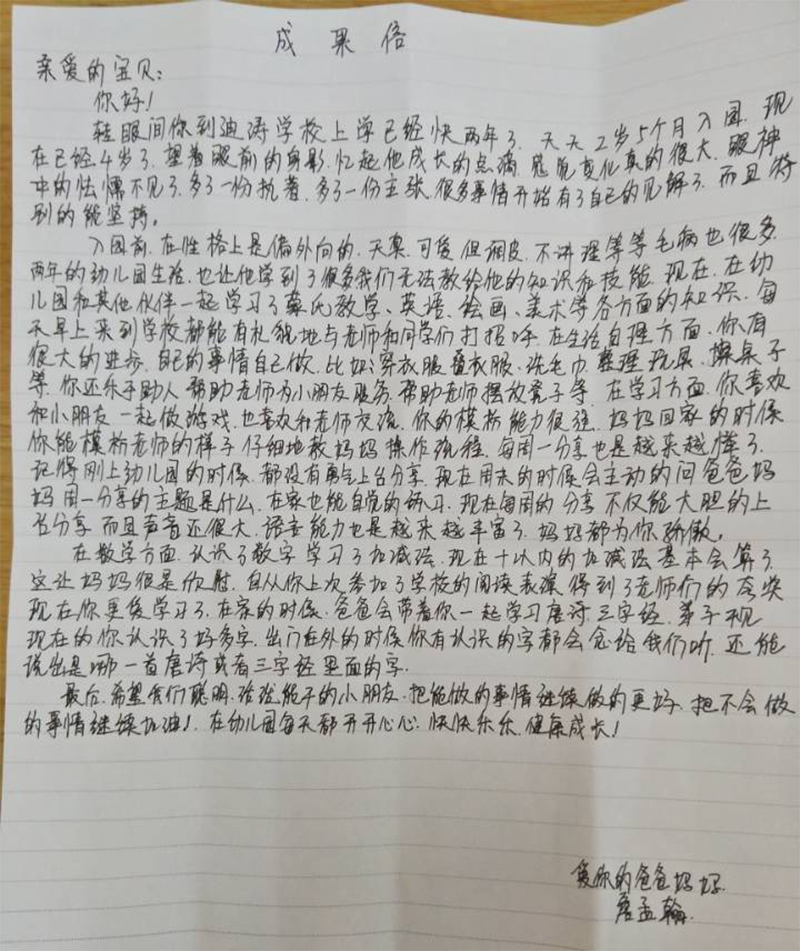 成果信
亲爱的宝贝:
你好!
转眼间你到迪涛学校上学已经快两年了. 天天2岁5个月入园. 现
在已经4岁了. 望着眼前的身影. 忆起他成长的点滴. 感觉变化真的很大. 眼神
中的怯懦不见了. 多了一份执着. 多了一份主张. 很多事情开始有了自己的见解了. 而且特
别的能坚持。
入园前. 在性格上是偏外向的. 天真. 可爱 但调皮. 不讲理等等毛病也很多.
两年的幼儿园生活. 也让他学到了很多我们无法教给他的知识和技能. 现在. 在幼
儿园和其他伙伴一起学习了蒙氏数学、英语、绘画、美术等各方面的知识. 每
天早上来到学校都能有礼貌地与老师和同学们打招呼. 在生活自理方面. 你有
很大的进步. 自己的事情自己做. 比如: 穿衣服 叠衣服. 洗毛巾. 整理玩具. 擦桌子
等. 你还乐于助人 帮助老师为小朋友服务. 帮助老师摆放凳子等. 在学习方面. 你喜欢
和小朋友一起做游戏. 也喜欢和老师交流. 你的模仿能力很强. 妈妈回家的时候
你能模仿老师的样子 仔细地教妈妈操作流程. 每周一分享也是越来越棒了.
记得刚上幼儿园的时候. 都没有勇气上台分享. 现在周末的时候会主动的问爸爸妈
妈周一分享的主题是什么. 在家也能自觉的练习. 现在每周的分享不仅能大胆的上
台分享 而且声音还很大. 语言能力也是越来越丰富了. 妈妈都为你骄傲。
在数学方面. 认识了数字 学习了加减法. 现在十以内的加减法基本会算了.
这让妈妈很是欣慰. 自从你上次参加了学校的阅读表演 得到了老师们的夸奖
现在你更爱学习了. 在家的时候. 爸爸会带着你一起学习唐诗. 三字经. 弟子规
现在的你认识了好多字. 出门在外的时候 你有认识的字都会念给我们听. 还能
说出是哪一首唐诗或者三字经里面的字.
最后. 希望我们聪明. 活泼能干的小朋友. 把能做的事情继续做的更好. 把不会做
的事情继续加油! 在幼儿园每天都开开心心. 快快乐乐. 健康成长!
爱你的爸爸妈妈.
唐孟翰.